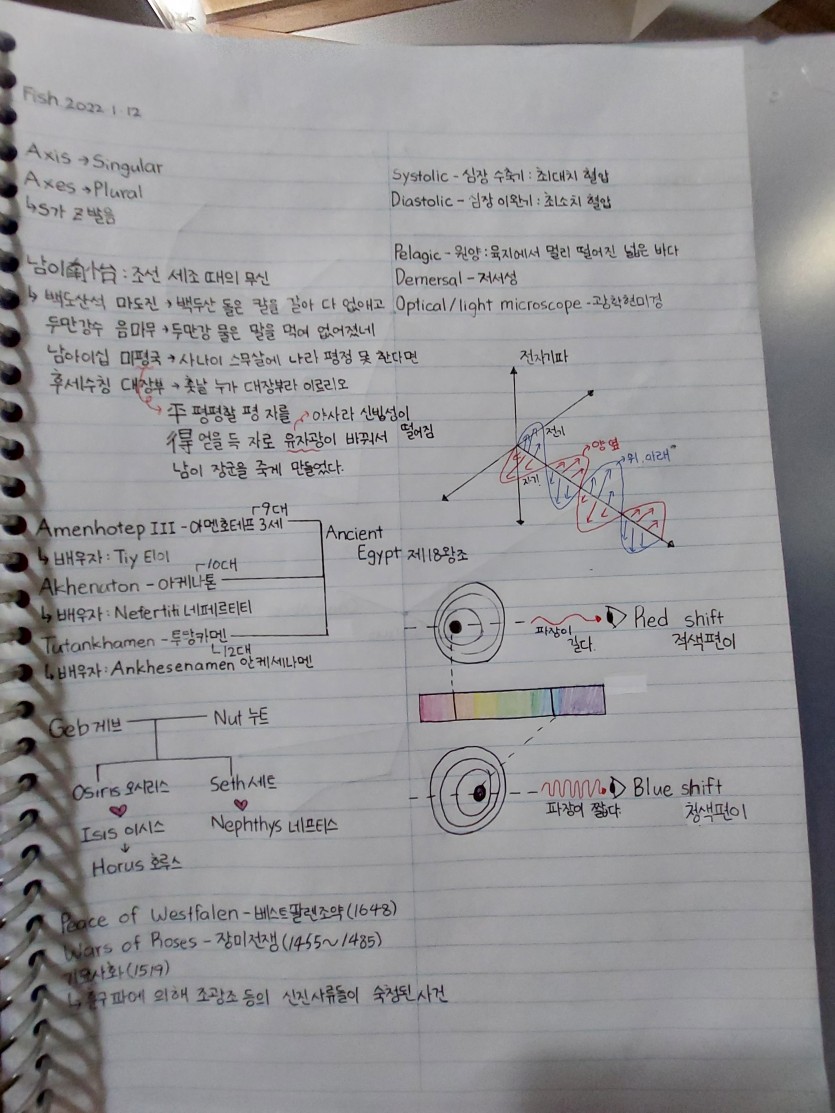 Fish 2022.1.12
Axis → Singular
Axes → Plural
↳ S가 z 발음
남이 : 조선 세조 때의 무신
↳ 백도산석 마도진 → 백두산 돌은 칼을 갈아 다 없애고
두만강수 음마무 → 두만강 물은 말을 먹여 없어졌네
남아이십 미평국 → 사나이 스무살에 나라 평정 못 한다면
후세수칭 대장부 → 훗날 누가 대장부라 이르리오
→ 平 평평할 평 자를 → 야사라 신빙성이 떨어짐
得 얻을 득 자로 유자광이 바꿔서
남이 장군을 죽게 만들었다.
Amenhotep III - 아멘호테프 3세 9대
↳ 배우자 : Tiy 티이
Akhenaton - 아케나톤 10대
↳ 배우자 : Nefertiti 네페르티티
Tutankhamen - 투탕카멘 12대
↳ 배우자 : Ankhesenamen 안케세나멘
Ancient
Egypt 제18왕조
Geb 게브
Nut 누트
Osiris 오시리스
Seth 세트
Isis 이시스
Nephthys 네프티스
↓
Horus 호루스
Peace of Westfalen - 베스트팔렌조약 (1648)
Wars of Roses - 장미전쟁 (1455~1485)
기묘사화 (1519)
↳ 훈구파에 의해 조광조 등의 신진사류들이 숙청된 사건
Systolic - 심장 수축기 : 최대치 혈압
Diastolic - 심장 이완기 : 최소치 혈압
Pelagic - 원양 : 육지에서 멀리 떨어진 넓은 바다
Demersal - 저서성
Optical/light microscope - 광학현미경
전자기파
전기
자기
→ 양 옆
→ 위, 아래
Red shift
적색편이
파장이
길다.
Blue shift
청색편이
파장이 짧다.